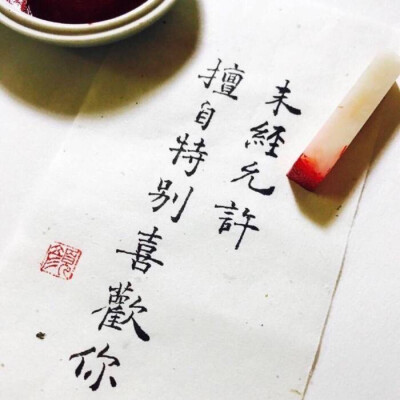 未經允許
擅自特别喜歡你